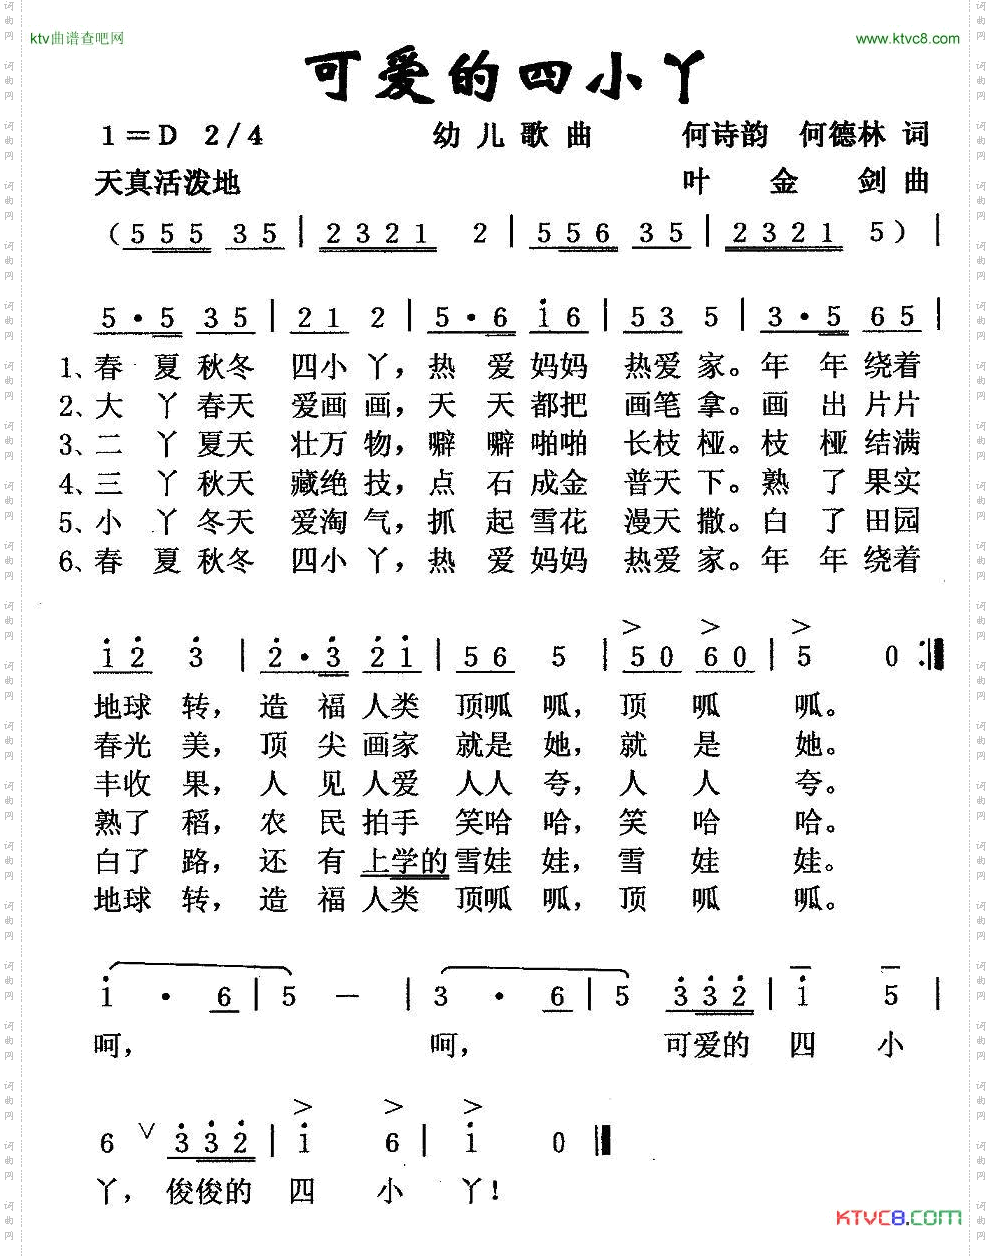 ktv曲谱查吧网 www.ktvc8.com
可爱的四小丫
1=D 2/4 幼儿歌曲 何诗韵 何德林 词
天真活泼地 叶金剑 曲
(5 5 5 3 5 | 2 3 2 1 2 | 5 5 6 3 5 | 2 3 2 1 5) |
5·5 3 5 | 2 1 2 | 5·6 i 6 | 5 3 5 | 3·5 6 5 |
1、春夏秋冬 四小丫，热爱妈妈 热爱家。年年绕着
2、大丫春天 爱画画，天天都把 画笔拿。画出片片
3、二丫夏天 壮万物，噼噼啪啪 长枝桠。枝桠结满
4、三丫秋天 藏绝技，点石成金 普天下。熟了果实
5、小丫冬天 爱淘气，抓起雪花 漫天撒。白了田园
6、春夏秋冬 四小丫，热爱妈妈 热爱家。年年绕着
> > >
i 2̇ 3̇ | 2̇·3̇ 2̇ i | 5 6 5 | 5 0 6 0 | 5 0 :‖
地球转，造福人类 顶呱呱，顶呱呱。
春光美，顶尖画家 就是她，就是她。
丰收果，人见人爱 人人夸，人人夸。
熟了稻，农民拍手 笑哈哈，笑哈哈。
白了路，还有上学的雪娃娃，雪娃娃。
地球转，造福人类 顶呱呱，顶呱呱。
i · 6 | 5 — | 3 · 6 | 5 3̇ 3̇ 2̇ | i 5 |
呵， 呵， 可爱的 四 小
> > >
6 ∨ 3̇ 3̇ 2̇ | i 6 | i 0 ‖
丫，俊俊的 四 小 丫！
KTVC8.COM
词曲网